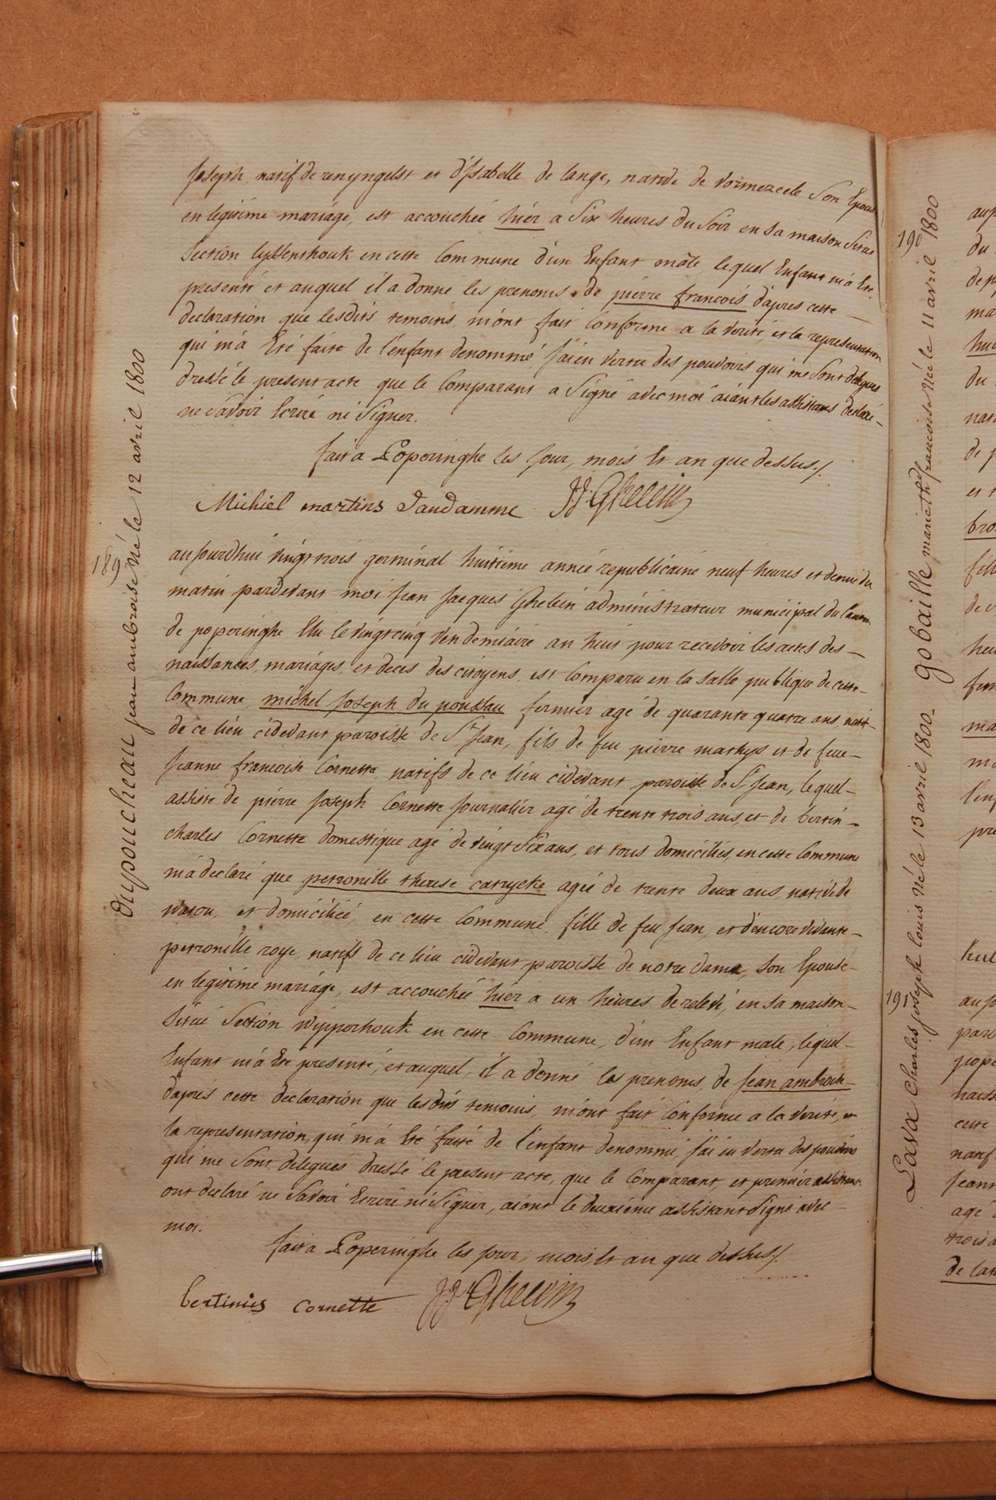 Joseph natif de renyngelst et d'Isabelle de lange, native de vormezeele Son Epouse
en legitime mariage, est accouchée hiér a Six heures du Soir en sa maison Situé
Section lyssenthouk en cette Commune d'un Enfant mâle lequel Enfant m'a Eté
presenté et auquel il a donne les prenoms de pierre francois d'apres cette
declaration que lesdits temoins m'ont fait Conforme a la verité, et la representation
qui m'a Eté faite de l'enfant denommé J'ai en vertu des pouvoirs qui me Sont delegués
dressé le present acte que le Comparant a Signé avec moi aiant les assistans declaré
ne Savoir Ecrire ni Signer.
fait a Poperinghe les Jour, mois Et an que dessus ./.
Michiel martins Vandamme JJ Ghelein
189
dupoucheau jean ambroise Né le 12 avril 1800
aujourdhui vingt trois germinal huitieme année republicaine neuf heures et demie du
matin pardevant moi Jean Jacques Ghelein administrateur municipal du Canton
de poperinghe Elu le vingt cinq Vendemiaire an huit pour recevoir les actes des
naissances, mariages, et deces des citoyens, est Comparu en la Salle publique de cette
Commune michel Joseph du pousseau fermier agé de quarante quatre ans natif
de ce lieu cidevant paroisse de St Jean, fils de feu pierre et de feue
Jeanne francoise Cornette natifs de ce lieu cidevant paroisse de St Jean, lequel
assisté de pierre Joseph Cornette Journalier agé de trente trois ans, et de bertin
charles Cornette domestique agé de vingt Six ans, et tous domiciliés, en cette Commune
m'a declaré que petronille therese catrycke agée de trente deux ans native de
watou, et domiciliée, en cette Commune, fille de feu Jean, et d'encore vivante
petronille roye, natifs de ce lieu cidevant paroisse de notre dame, Son Epouse
en legitime mariage, est accouchée hiér a un heures de en sa maison
Situé Section wipperhouk en cette Commune, d'un Enfant male, lequel
Enfant m'a Eté presenté, et auquel, il a donné les prenoms de Jean ambroise
d'apres cette declaration que lesdits temoins, m'ont fait Conforme a la verité, et
la representation, qui m'a Eté faite de l'enfant denommé, J'ai en vertu des pouvoirs
qui me Sont delegués dressé le present acte, que le Comparant, et premier assistant
ont declaré ne Savoir Ecrire ni Signer, aiant le deuxiéme assistant Signé avec
moi.
fait a Poperinghe les jour, mois, et an que dessus ./.
bertinies cornette JJ Ghelein
190
gobaille, marie thé francoise Née le 11 avril 1800
191
Lava Charles joseph louis Né le 13 avril 1800